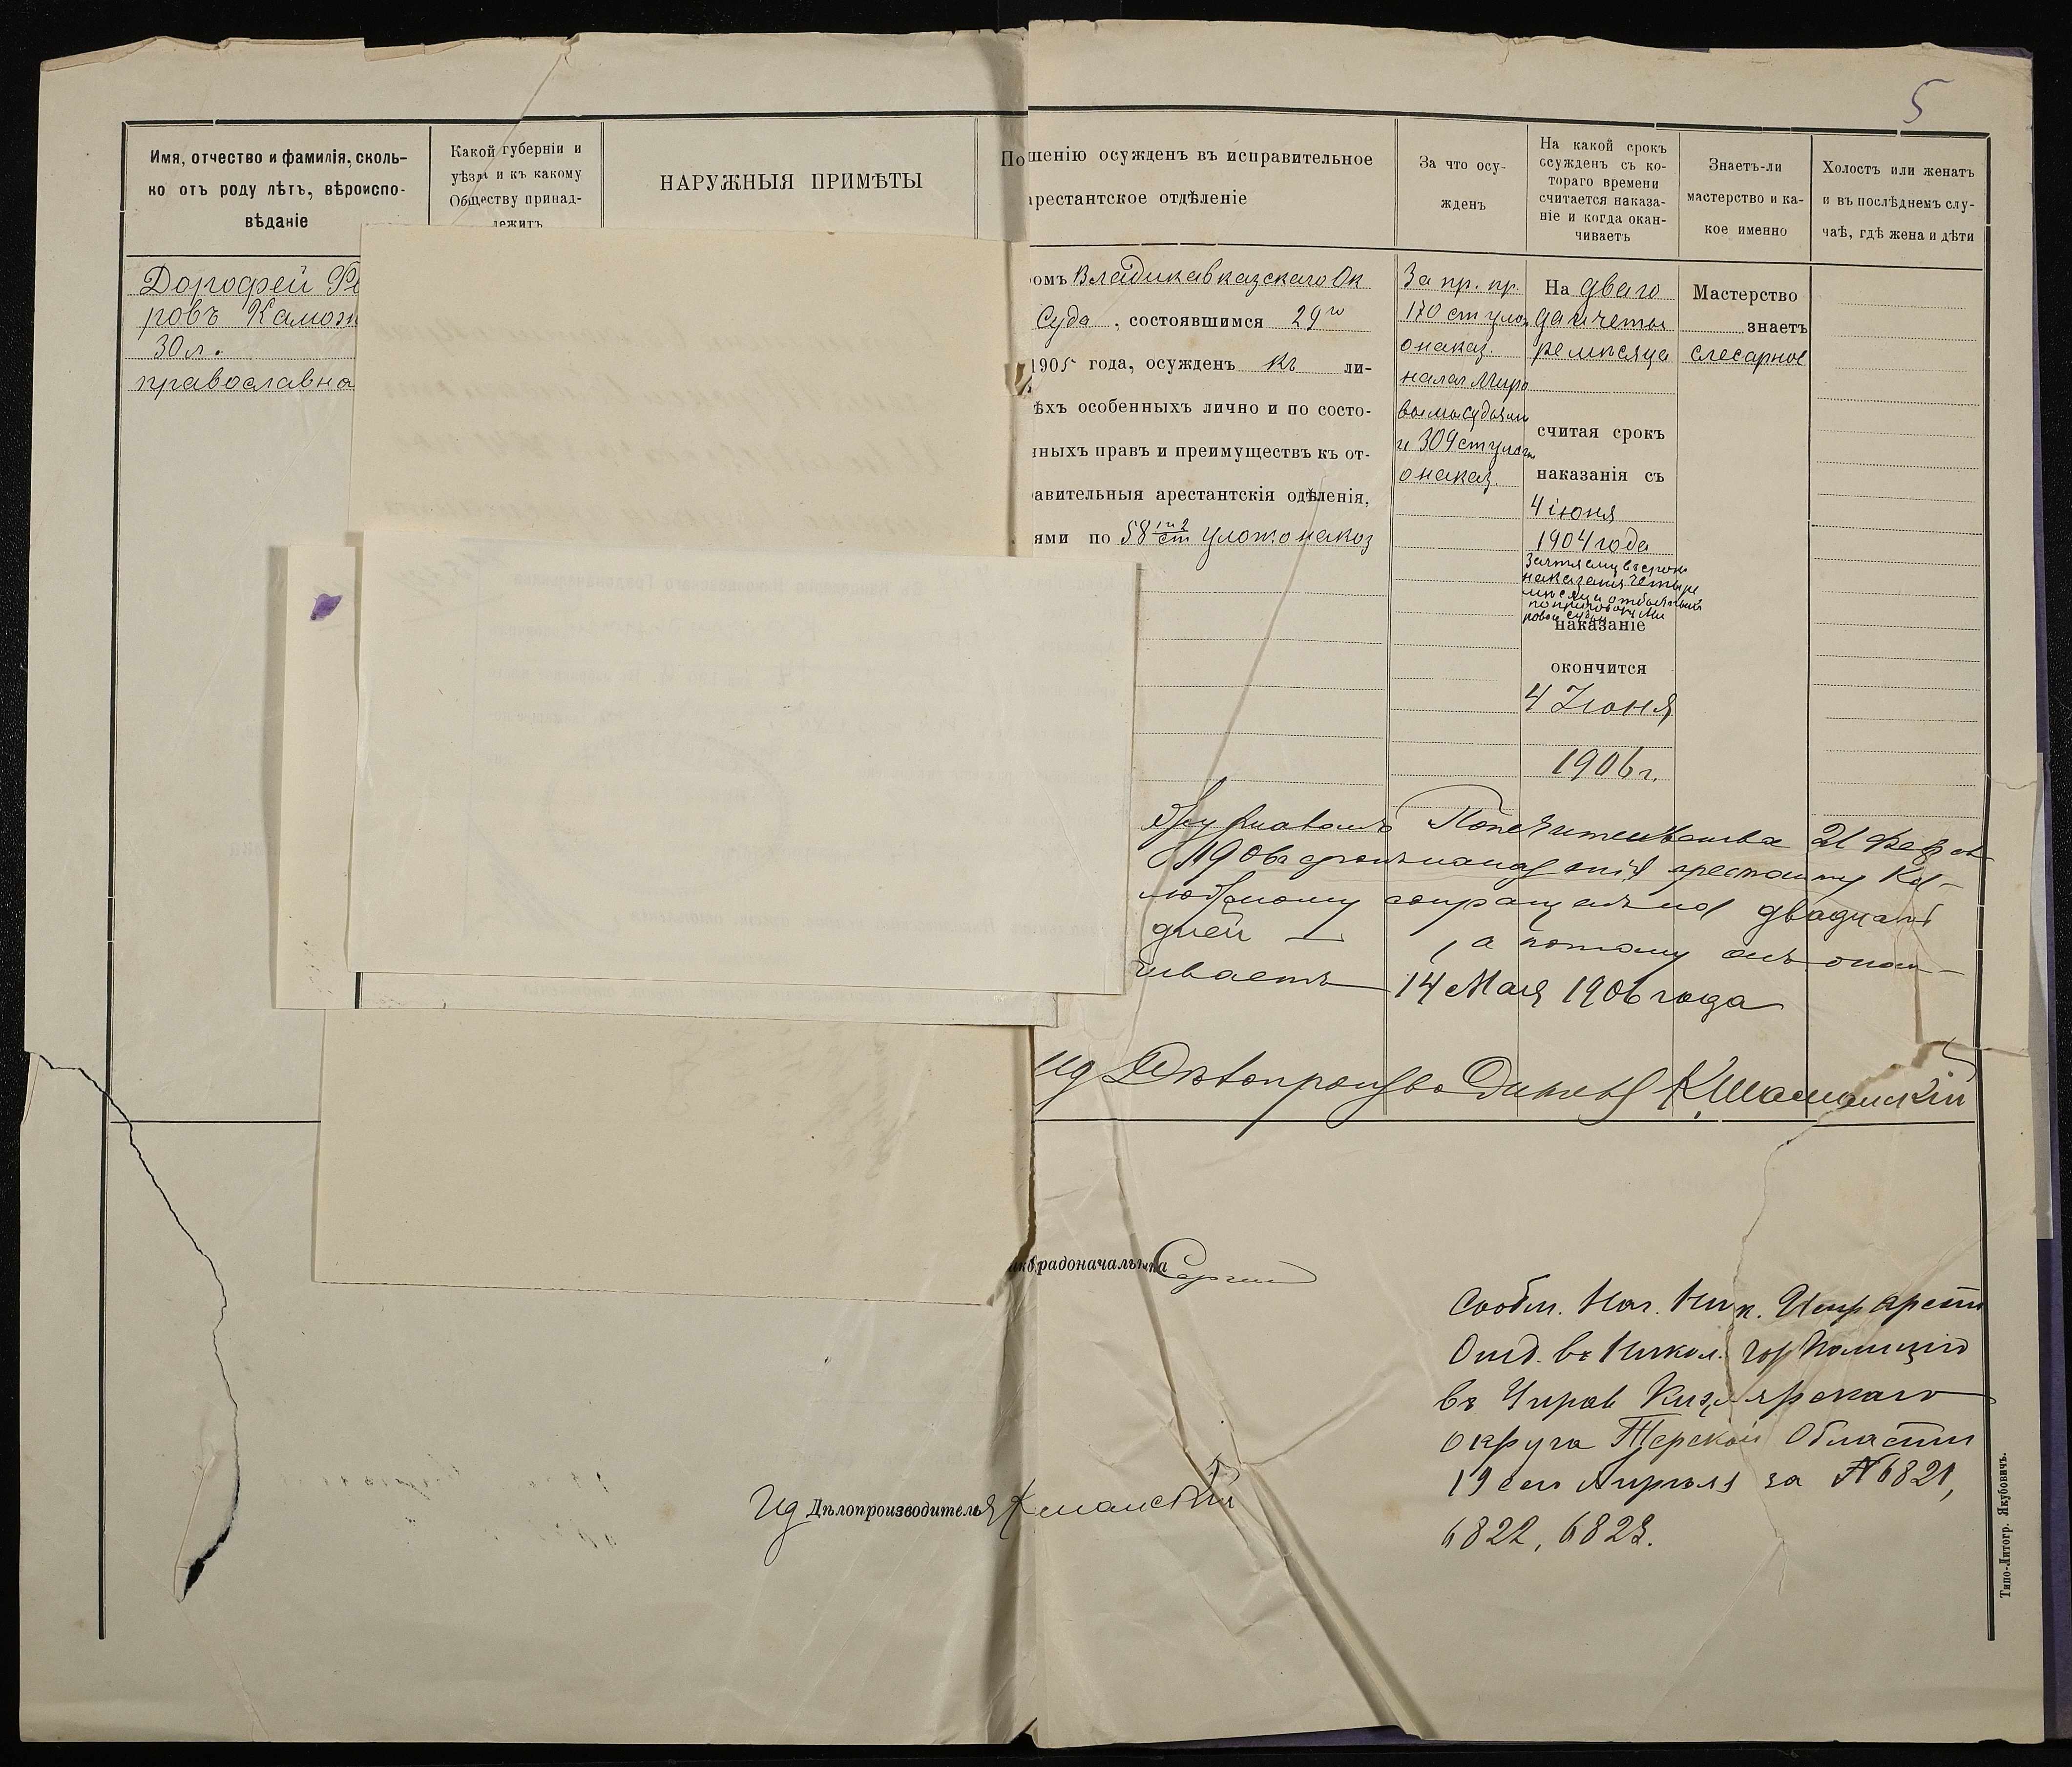 5
Имя, отчество и фамилія, сколь-
ко отъ роду лѣтъ, вѣроиспо-
вѣданіе
Какой губерніи и
уѣзда и къ какому
Обществу принад-
лежитъ
НАРУЖНЫЯ ПРИМѢТЫ
По
шенію осужденъ въ исправительное
арестантское отдѣленіе
За что осу-
жденъ
На какой срокъ
осужденъ съ ко-
тораго времени
считается наказа-
ніе и когда окан-
чиваетъ
Знаетъ-ли
мастерство и ка-
кое именно
Холостъ или женатъ
и въ послѣднемъ слу-
чаѣ, гдѣ жена и дѣти
Дорофей
ровъ
30 л.
православна
омъ Владикавказскаго Ок
Суда, состоявшимся 29го
1905 года, осужденъ къ ли-
ѣхъ особенныхъ лично и по состо-
нныхъ правъ и преимуществъ къ от-
авительныя арестантскія одѣленія,
ями по 58 ст улож о наказ
За пр. пр.
170 ст улож
о наказ.
налаг Миро
выми судьями
и 309 ст улож
о наказ.
На два го
да и четы
ре мѣсяца
считая срокъ
наказанія съ
4 іюня
1904 года
наказанія четыре
наказаніе
окончится
4 Іюня
1906 г.
Мастерство
знаетъ
слесарное
Попечительства 21 Февр
сокращенъ на двадцать
дней, а потому онъ окан-
чиваетъ 14 Мая 1906 года
Ид Дѣлопроизводитель
радоначальника
Ид Дѣлопроизводителя
Сообщ. Нач. Ник. Испр арест
Отд. въ Никол. гор Полицію
въ Управ Кизлярскаго
округа Терской Области
19 сего Апрѣля за № 6821,
6822, 6823.
Типо-Литогр. Якубовичъ.